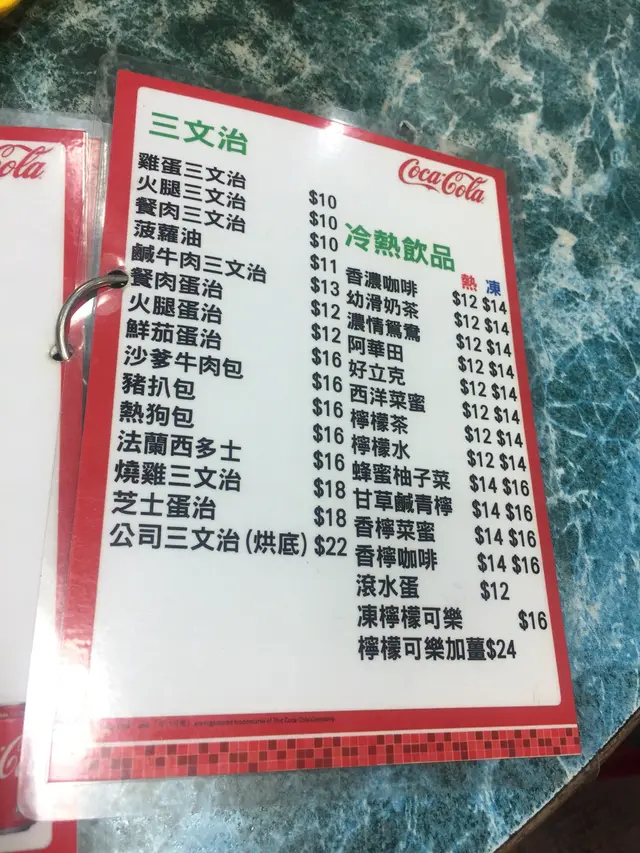 三文治
雞蛋三文治 $10
火腿三文治 $10
餐肉三文治 $10
菠蘿油 $11
鹹牛肉三文治 $13
餐肉蛋治 $12
火腿蛋治 $12
鮮茄蛋治 $16
沙爹牛肉包 $16
豬扒包 $16
熱狗包 $16
法蘭西多士 $16
燒雞三文治 $18
芝士蛋治 $18
公司三文治(烘底) $22
Coca-Cola
冷熱飲品 熱 凍
香濃咖啡 $12 $14
幼滑奶茶 $12 $14
濃情鴛鴦 $12 $14
阿華田 $12 $14
好立克 $12 $14
西洋菜蜜 $12 $14
檸檬茶 $12 $14
檸檬水 $12 $14
蜂蜜柚子菜 $14 $16
甘草鹹青檸 $14 $16
香檸菜蜜 $14 $16
香檸咖啡 $14 $16
滾水蛋 $12
凍檸檬可樂 $16
檸檬可樂加薑$24